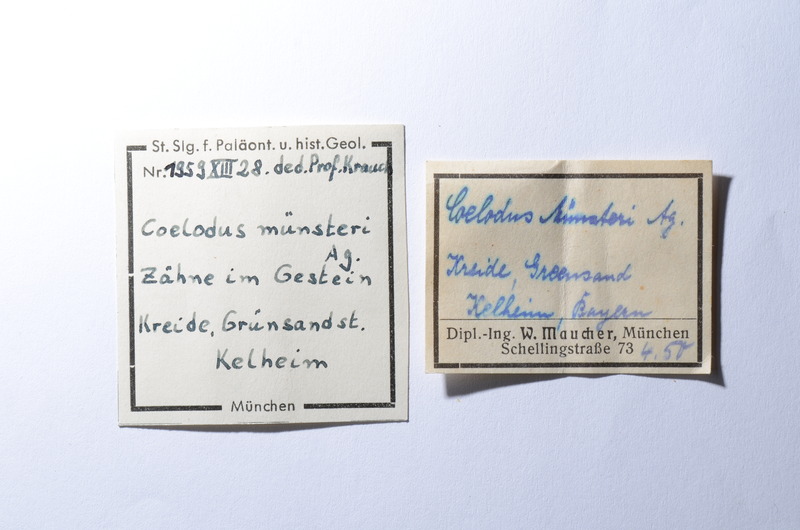 St. Slg. f. Paläont. u. hist. Geol.
Nr. 1959 XIII 28. ded. Prof. Krauch
Coelodus münsteri
Ag.
Zähne im Gestein
Kreide, Grünsandst.
Kelheim
München
Coelodus Münsteri Ag.
Kreide, Greensand
Kelheim, Bayern
Dipl.-Ing. W. Maucher, München
Schellingstraße 73 4.50